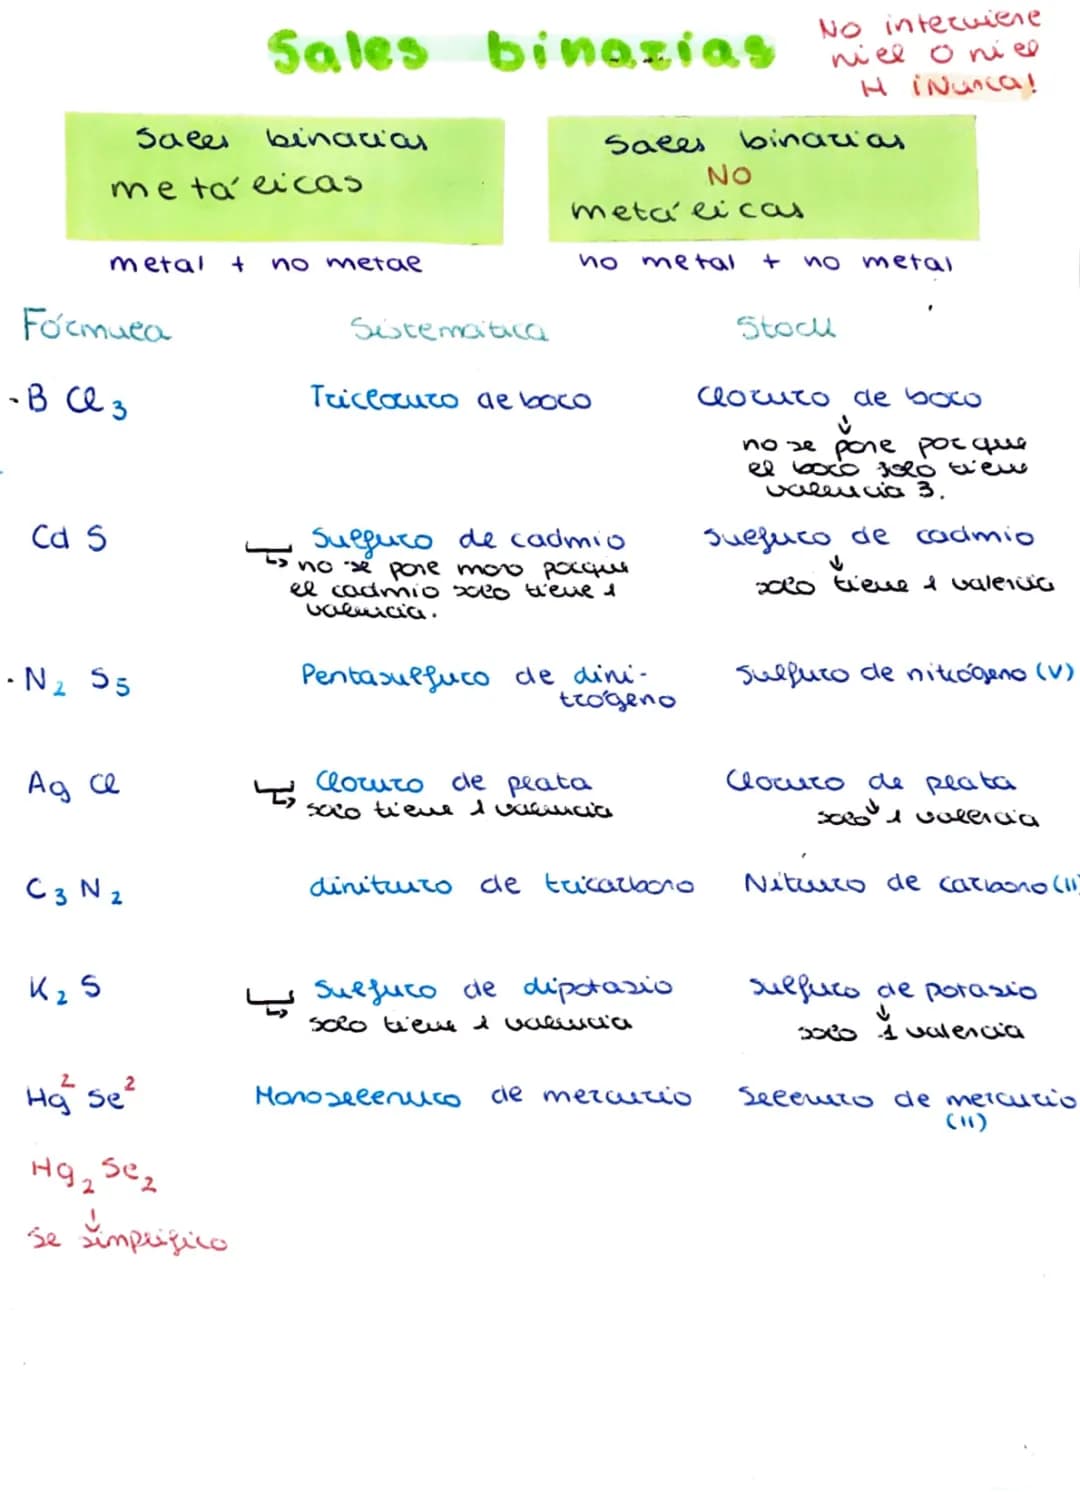 Sales binarias
No interviene
ni el O ni el
H ¡Nunca!
Sales binarias
metálicas
Sales binarias
NO
metálicas
metal + no metal
no metal + no metal
Fórmula Sistemática Stock
- B Cl3 Tricloruro de boro Cloruro de boro
no se pone porque
el boro solo tiene
valencia 3.
Cd S Sulfuro de cadmio Sulfuro de cadmio
no se pone mono porque
el cadmio solo tiene 1
valencia.
solo tiene 1 valencia
· N2 S5 Pentasulfuro de dini- Sulfuro de nitrógeno (V)
trógeno
Ag Cl Cloruro de plata Cloruro de plata
solo tiene 1 valencia solo 1 valencia
C3 N2 dinitruro de tricarbono Nitruro de carbono (II)
K2 S Sulfuro de dipotasio Sulfuro de potasio
solo tiene 1 valencia solo 1 valencia
Hg2 Se2 Monoselenuro de mercurio Seleniuro de mercurio
(II)
Hg2 Se2
se simplifico